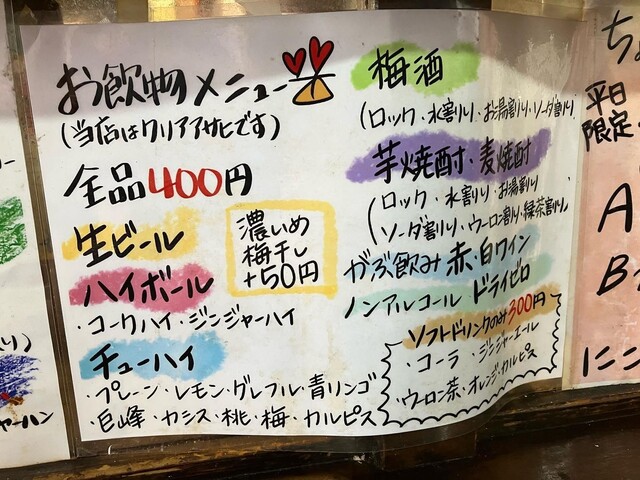 お飲物メニュー
(当店はクリアアサヒです)
全品400円
生ビール
ハイボール
・コークハイ・ジンジャーハイ
チューハイ
・プレーン・レモン・グレフル・青リンゴ
・巨峰・カシス・桃・梅・カルピス
濃いめ
梅干し
+50円
梅酒
(ロック・水割り・お湯割り・ソーダ割り)
芋焼酎・麦焼酎
(ロック・水割り・お湯割り
ソーダ割り・ウーロン割り・緑茶割り)
がぶ飲み 赤・白ワイン
ノンアルコール ドライゼロ
ソフトドリンクのみ300円
・コーラ・ジンジャーエール
・ウーロン茶・オレンジ・カルピス
ち
平日
限定
A
B
にこ